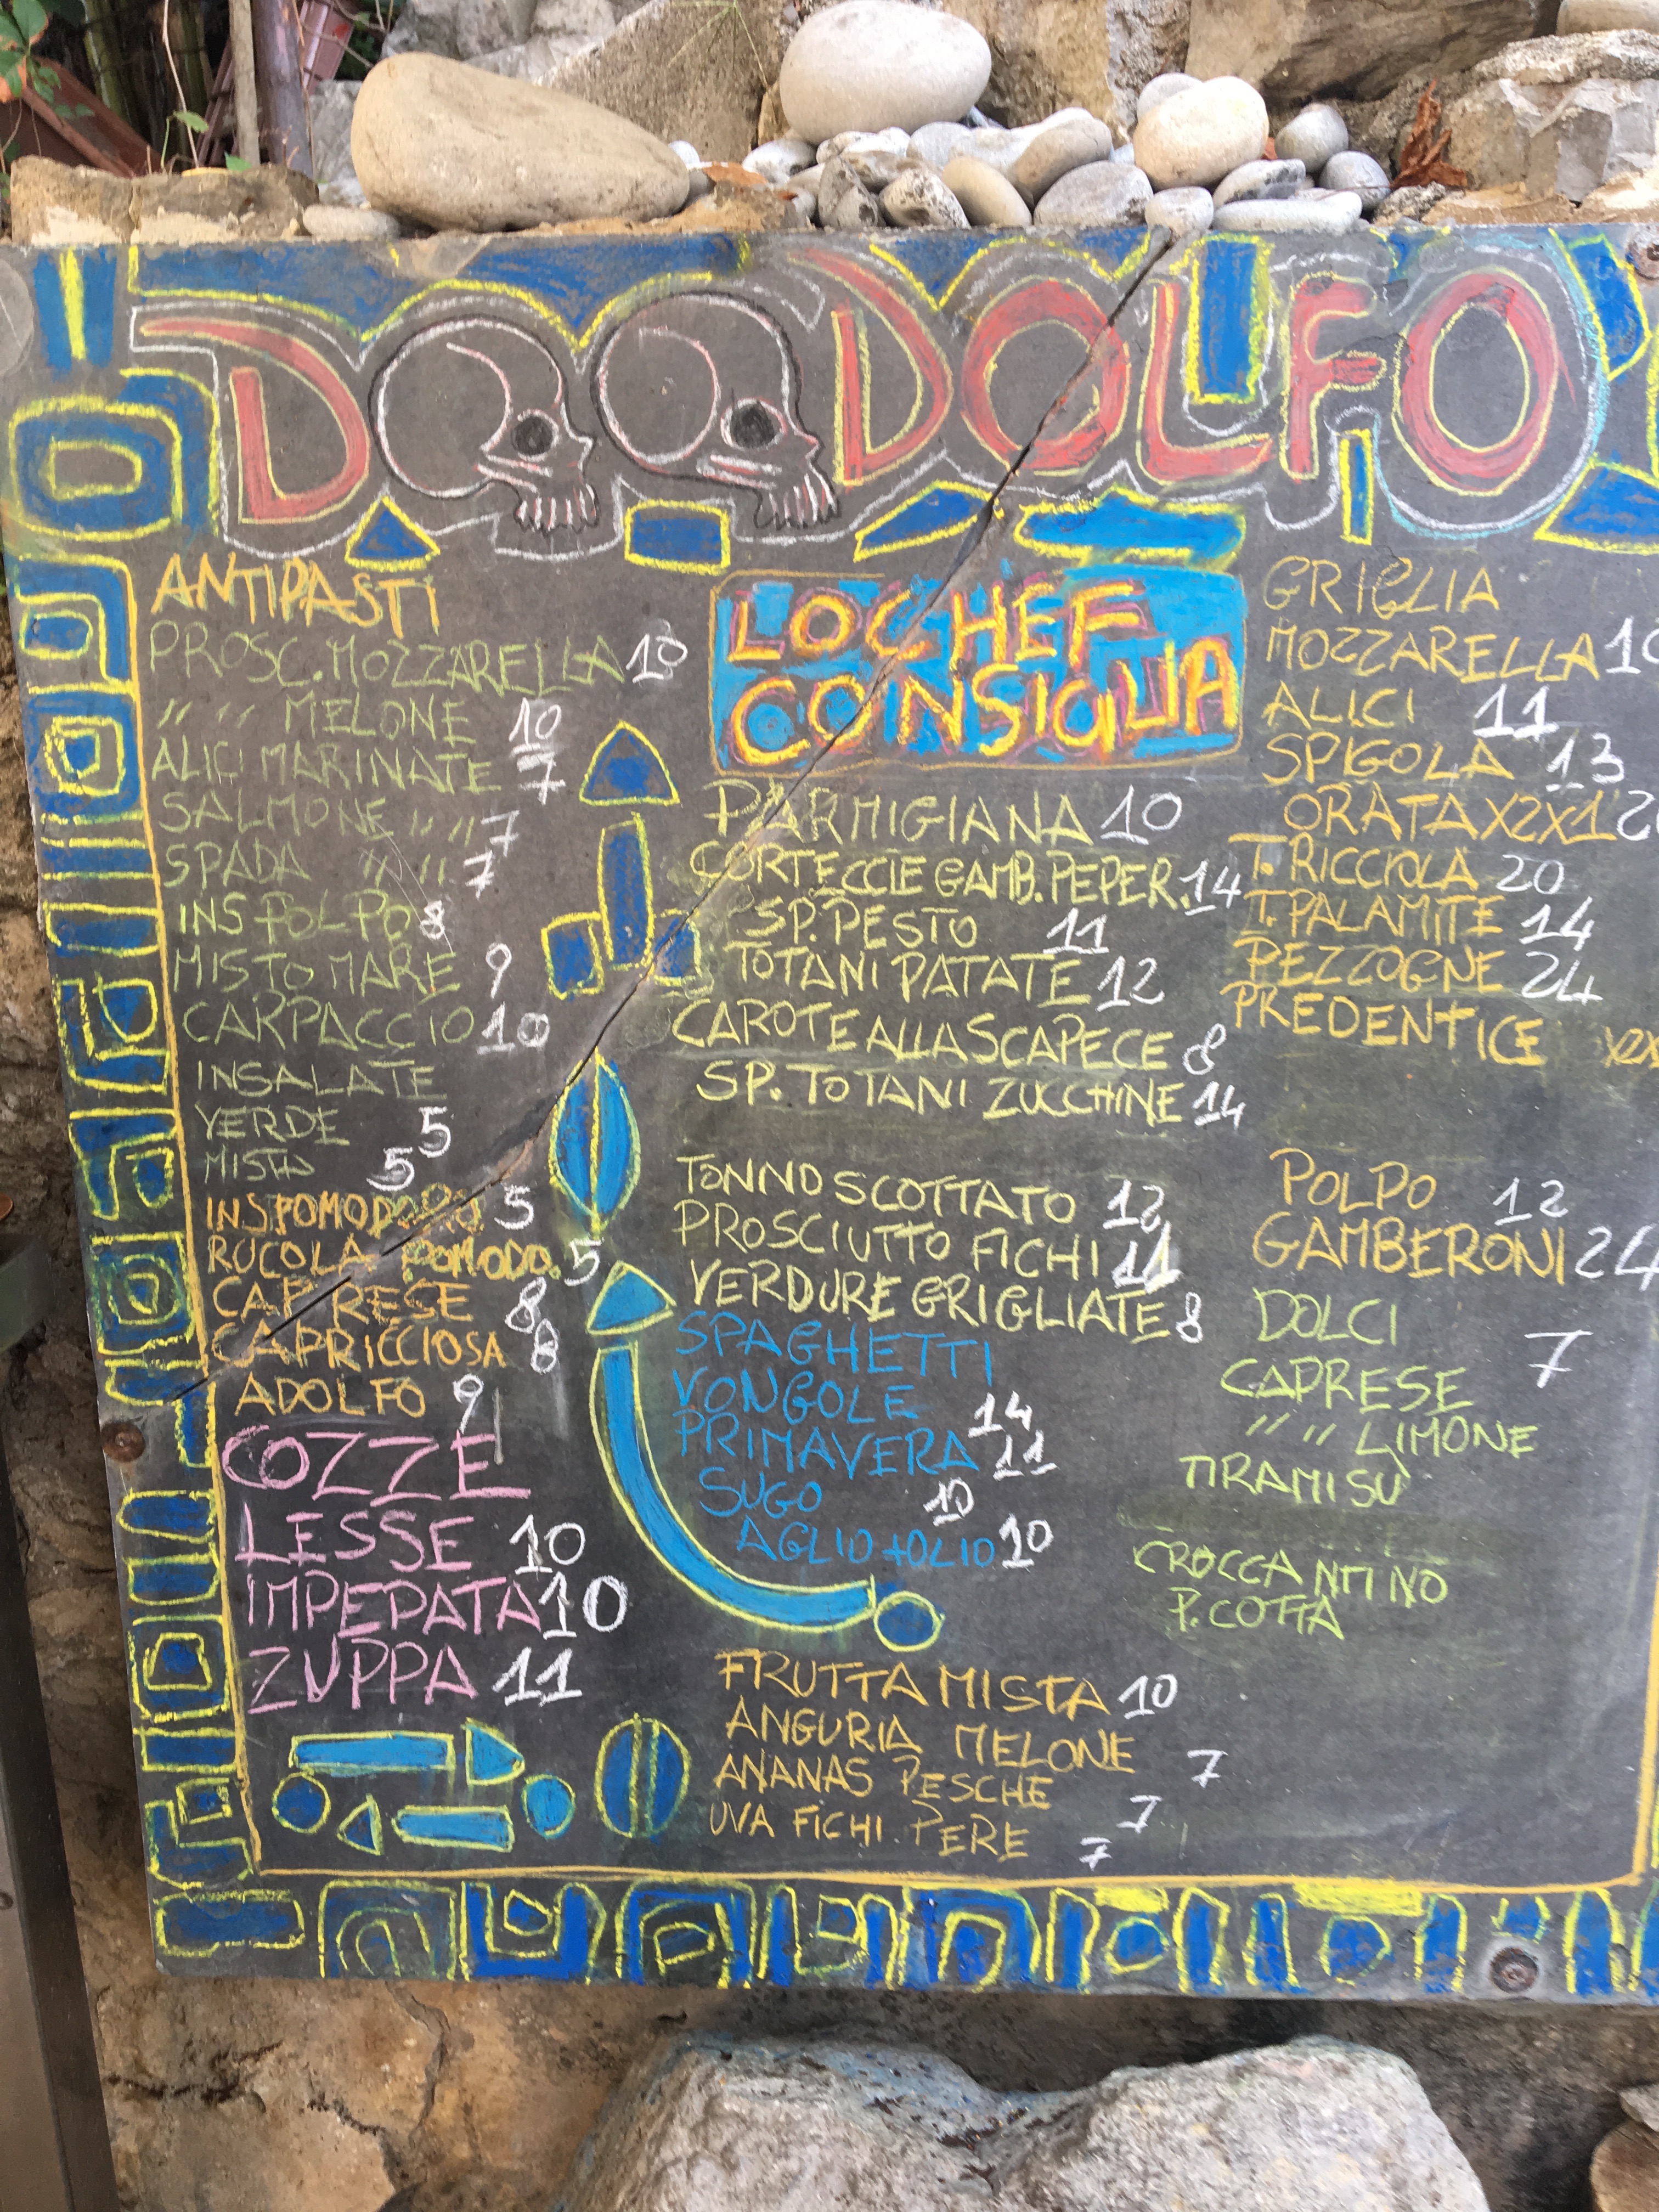 DOLFO
ANTIPASTI
PROSC. MOZZARELLA 10
" " MELONE 10
ALICI MARINATE 7
SALMONE " " 7
SPADA " " 7
INS POLPO 8
MISTO MARE 9
CARPACCIO 10
INSALATE
VERDE 5
MISTA 5
INS POMODORO 5
RUCOLA POMODO. 5
CAPRESE 8
CAPRICCIOSA 8
ADOLFO 9
COZZE
LESSE 10
IMPEPATA 10
ZUPPA 11
LO CHEF
CONSIGLIA
PARMIGIANA 10
CORTECCIE GAMB. PEPER. 14
SP. PESTO 11
TOTANI PATATE 12
CAROTE ALLA SCAPECE 8
SP. TOTANI ZUCCHINE 14
TONNO SCOTTATO 12
PROSCIUTTO FICHI 11
VERDURE GRIGLIATE 8
SPAGHETTI
VONGOLE 14
PRIMAVERA 11
SUGO 10
AGLIO+OLIO 10
FRUTTA MISTA 10
ANGURIA MELONE 7
ANANAS PESCHE 7
UVA FICHI. PERE 7
GRIGLIA
MOZZARELLA 10
ALICI 11
SPIGOLA 13
ORATA X2X1
T. RICCIOLA 20
T. PALAMITE 14
PEZZOGNE 24
PREDENTICE
POLPO 12
GAMBERONI 24
DOLCI 7
CAPRESE
" " LIMONE
TIRAMISÙ
CROCCANTINO
P. COTTA